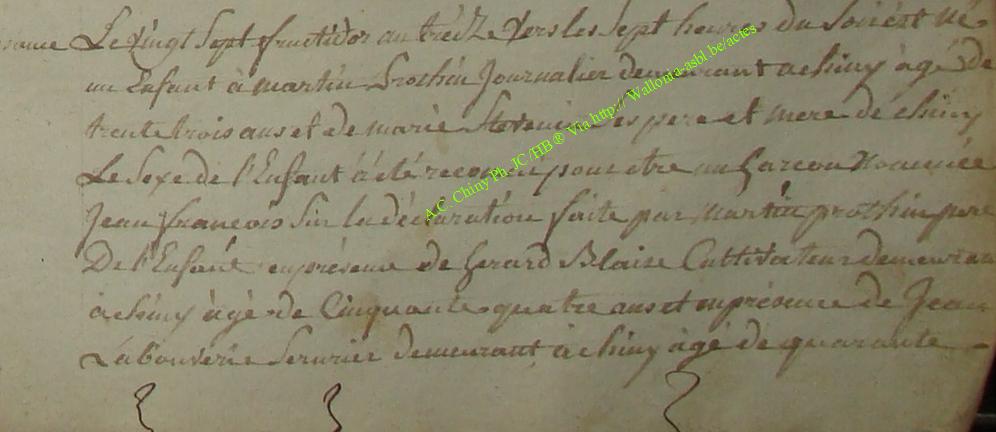 Le vingt sept fructidor an treize vers les sept heures du soir est né
un Enfant à martin Prothin Journalier demeurant a chiny âgé de
trente trois ans et de marie ses pere et mere de chiny
Le Sexe de l'Enfant à été reconnu pour etre un garcon nommée
Jean francois Sur la déclaration faite par martin prothin pere
De l'Enfant en présence de Gerard Blaise Cultivateur demeuran
à chiny âgé de Cinquante quatre ans et en présence de Jean
Labouverie Serurier demeurant à chiny âgé de quarante
A.C. Chiny Ph. JC /HB ® Via http:// Wallonia-asbl.be/actes